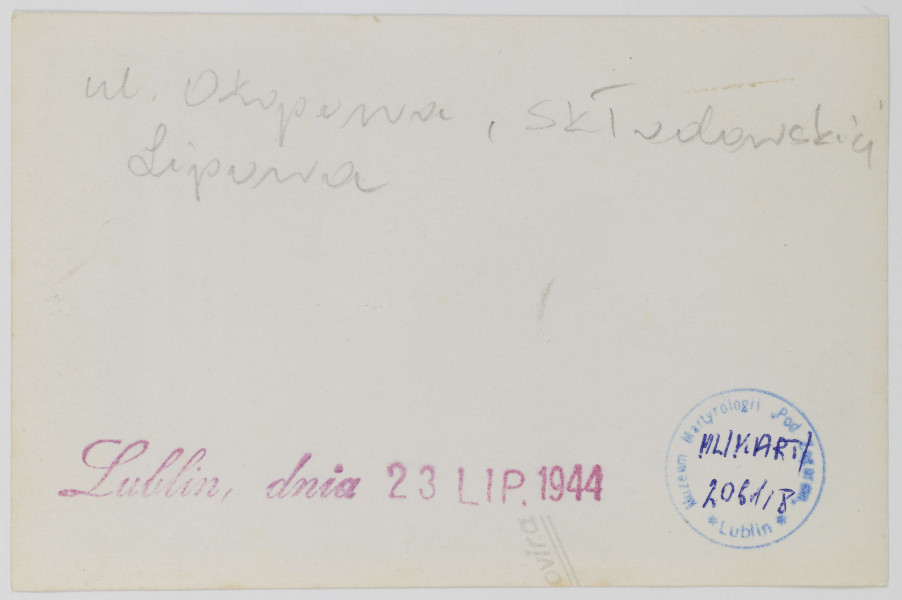 ul. Okopowa, Skłodowskiej
Lipowa
Lublin, dnia 23 LIP. 1944
Muzeum Martyrologii „Pod
* Lublin *